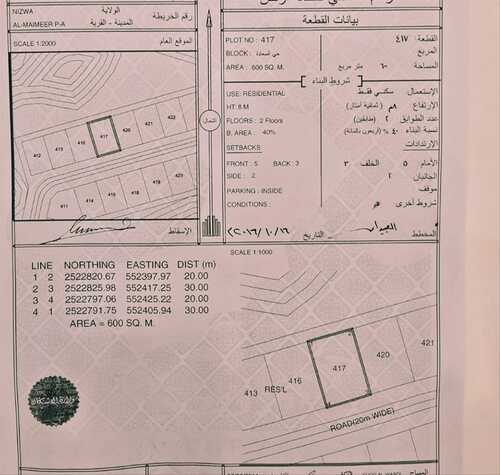 NIZWA
الولاية
رقم الخريطة
AL-MAIMEER P-A
المدينة - القرية
SCALE 1:2000
الموقع العام
412
413
416
417
420
421
422
411
414
الشمال
الإسقاط
بيانات القطعة
PLOT NO : 417
٤١٧
القطعة
BLOCK :
المربع
AREA : 600 SQ. M.
متر مربع
المساحة
شروط البناء
USE: RESIDENTIAL
سكني فقط
الإستعمال
HT: 8 M
٨م (ثمانية أمتار)
الارتفاع
FLOORS : 2 Floors
٢ (طابقين)
عدد الطوابق
B. AREA : 40%
٤٠% (أربعون بالمائة)
نسبة البناء
SETBACKS
الإرتدادات
FRONT : 5 BACK : 3
٣
الخلف
٥
الأمام
SIDE : 2
٢
الجانبان
PARKING : INSIDE
موقف
CONDITIONS :
شروط أخرى
التاريخ
المخطط
LINE NORTHING EASTING DIST (m)
1 2 2522820.67 552397.97 20.00
2 3 2522825.98 552417.25 30.00
3 4 2522797.06 552425.22 20.00
4 1 2522791.75 552405.94 30.00
AREA = 600 SQ. M.
SCALE 1:1000
413
RES'L
416
417
420
421
ROAD(20m WIDE)
المساح